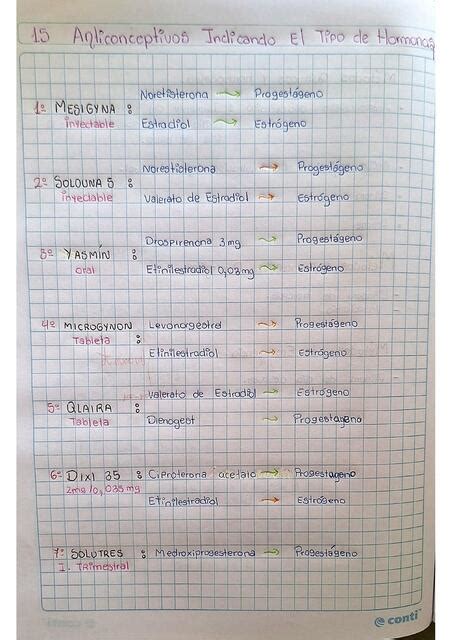 15 Anticonceptivos Indicando El Tipo de Hormonas
Noretisterona → Progestágeno
1º MESIGYNA :
inyectable Estradiol → Estrógeno
Norestisterona → Progestágeno
2º SOLOUNA 5 :
inyectable Valerato de Estradiol → Estrógeno
Drospirenona 3mg → Progestágeno
3º YASMÍN :
oral Etinilestradiol 0,03mg → Estrógeno
4º MICROGYNON Levonorgestrel → Progestágeno
Tableta :
Etinilestradiol → Estrógeno
Valerato de Estradiol → Estrógeno
5º QLAIRA :
Tableta Dienogest → Progestageno
6º DIXI 35 : Ciproterona acetato → Progestageno
2mg/0,035mg
Etinilestradiol → Estrógeno
7º SOLUTRES : Medroxiprogesterona → Progestágeno
I. TRIMESTRAL
conti